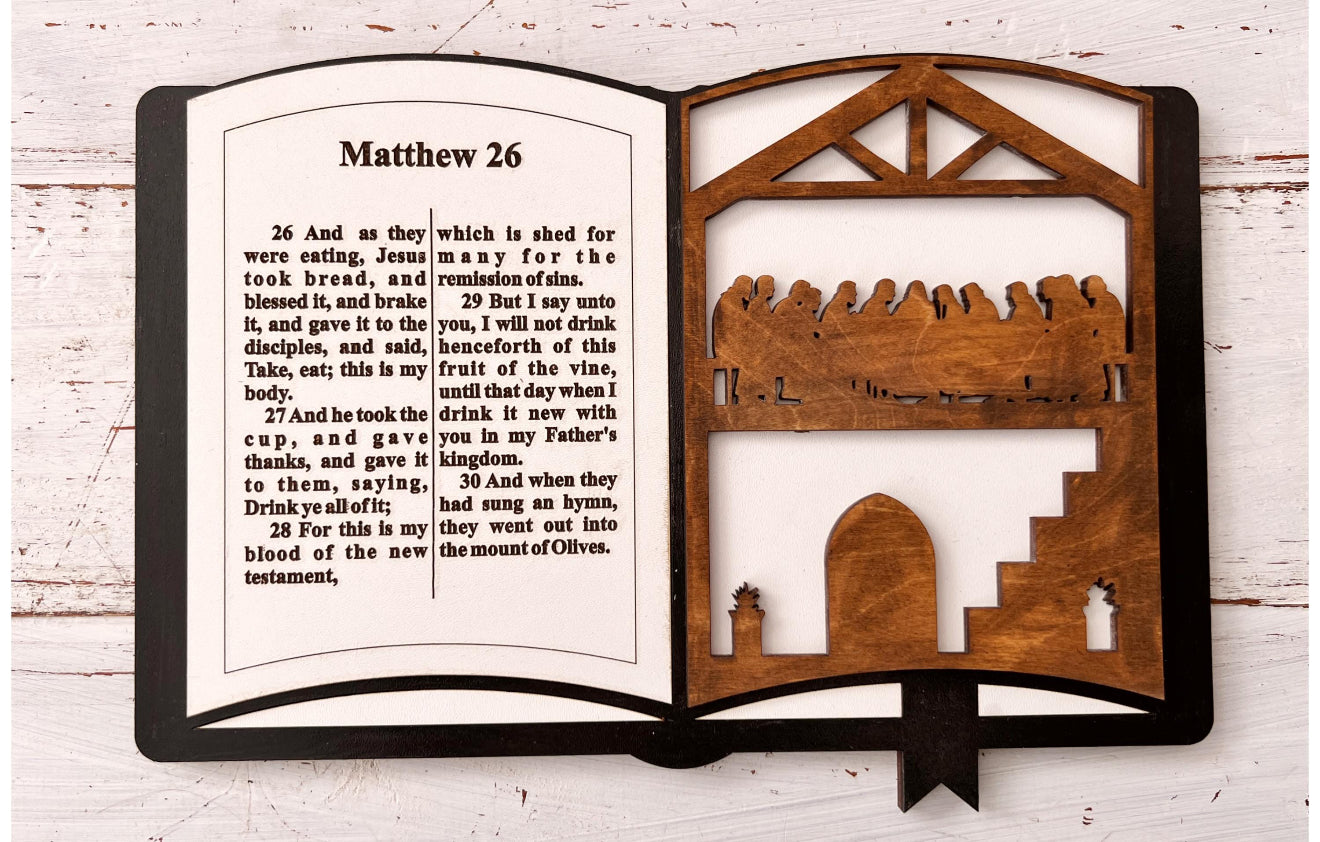 Matthew 26
26 And as they
were eating, Jesus
took bread, and
blessed it, and brake
it, and gave it to the
disciples, and said,
Take, eat; this is my
body.
27 And he took the
cup, and gave
thanks, and gave it
to them, saying,
Drink ye all of it;
28 For this is my
blood of the new
testament,
which is shed for
many for the
remission of sins.
29 But I say unto
you, I will not drink
henceforth of this
fruit of the vine,
until that day when I
drink it new with
you in my Father's
kingdom.
30 And when they
had sung an hymn,
they went out into
the mount of Olives.